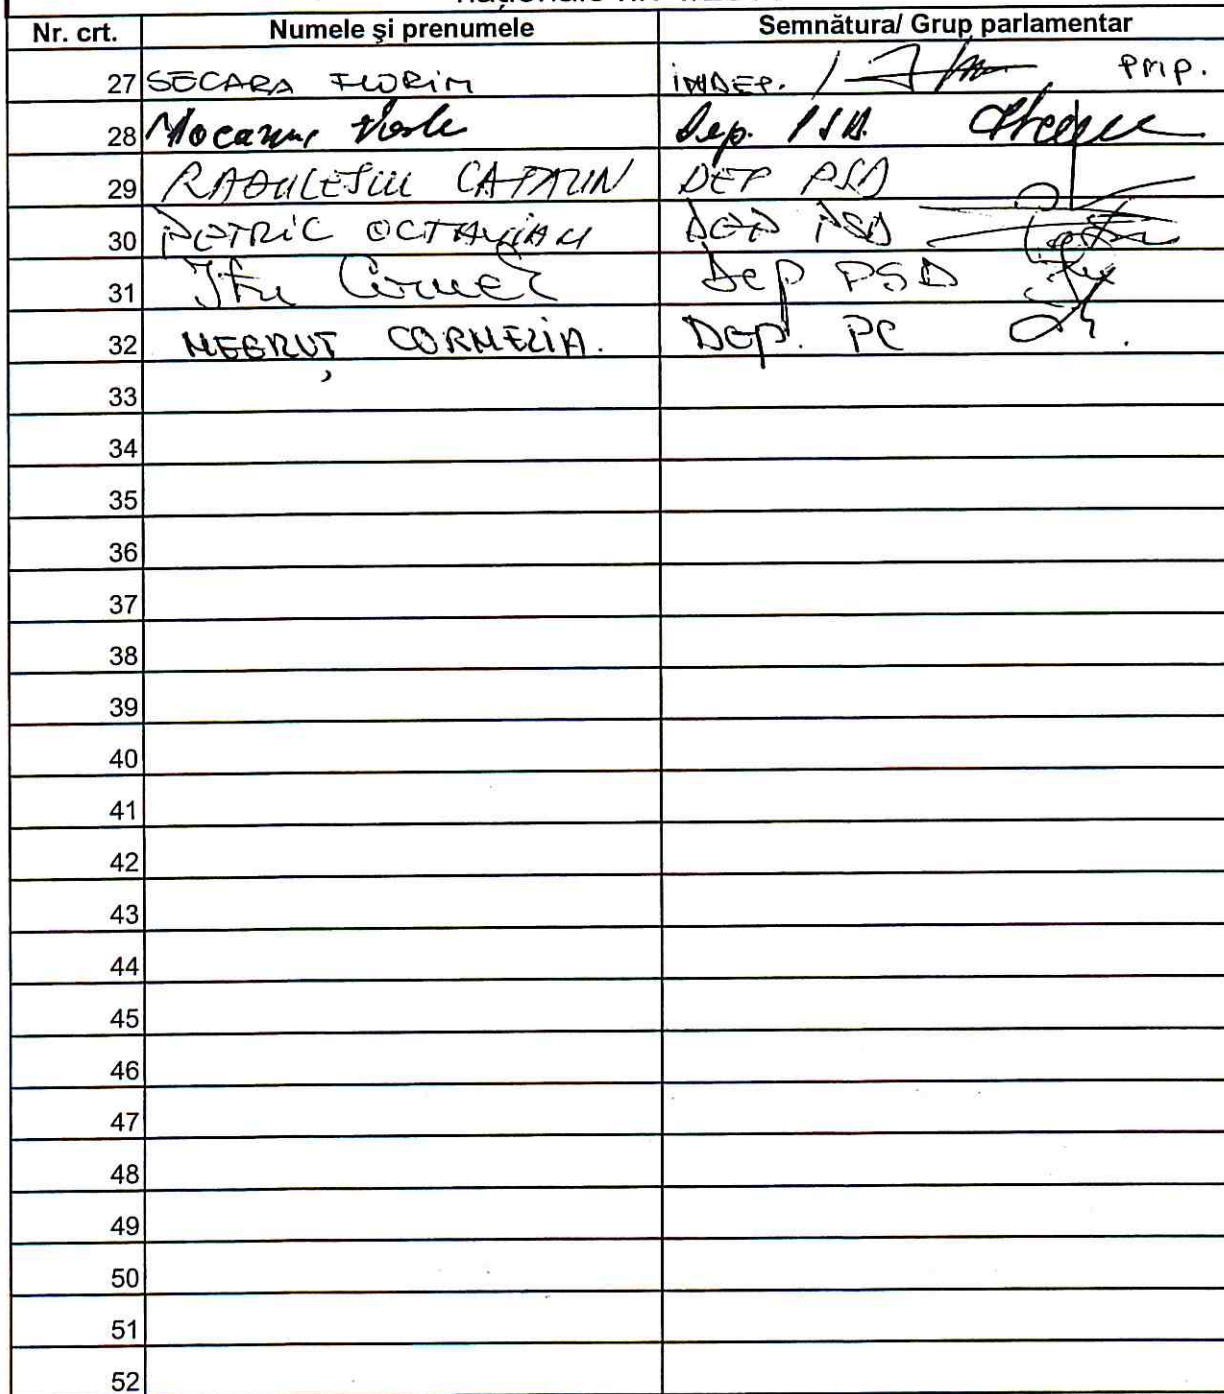 Nr. crt. Numele şi prenumele Semnătura/ Grup parlamentar
27 SECARA FLORIN INDEP. PMP.
28 Mocanu Vasile Dep. PSD.
29 RADULESCU CATALIN DEP PSD
30 PETRIC OCTAVIAN DEP PSD
31 Itu Cornel Dep PSD
32 NEGRUȚ CORNELIA. DEP. PC
33
34
35
36
37
38
39
40
41
42
43
44
45
46
47
48
49
50
51
52